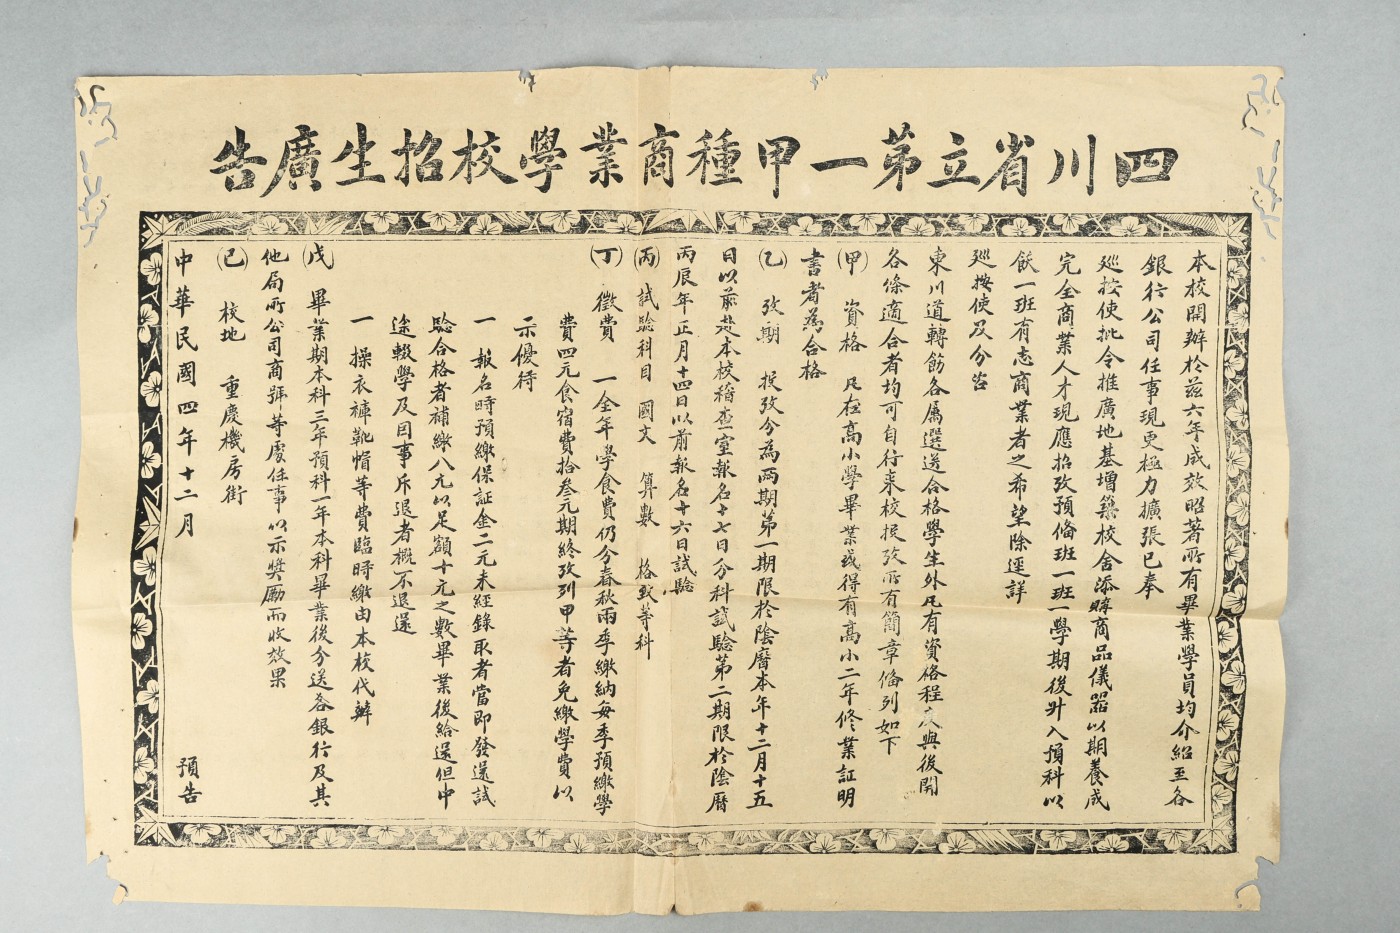 四川省立第一甲種商業學校招生廣告
本校開辦於茲六年成效昭著所有畢業學員均介紹至各
銀行公司任事現更極力擴張已奉
巡按使批令推廣地基增築校舍添購商品儀器以期養成
完全商業人才現應招攷預備班一班一學期後升入預科以
飫一班有志商業者之希望除逕詳
巡按使及分咨
東川道轉飭各屬選送合格學生外凡有資格程度與後開
各條適合者均可自行來校投攷所有簡章偹列如下
(甲) 資格 凡在高小學畢業或得有高小二年修業証明
書者為合格
(乙) 攷期 投攷分為兩期第一期限於陰曆本年十二月十五
日以前赴本校稽查室報名十七日分科試驗第二期限於陰曆
丙辰年正月十四日以前報名十六日試驗
(丙) 試驗科目 國文 算數 格致等科
(丁) 徵費 一全年學食費仍分春秋兩季繳納每季預繳學
費四元食宿費拾叁元期終攷列甲等者免繳學費以
示優待
一 報名時預繳保証金二元未經錄取者當即發還試
驗合格者補繳八元以足額十元之數畢業後給還但中
途輟學及因事斥退者概不退還
一 操衣褲靴帽等費臨時繳由本校代辦
(戊) 畢業期本科三年預科一年本科畢業後分送各銀行及其
他局所公司商號等處任事以示奬勵而收效果
(已) 校地 重慶機房街
中華民國四年十二月 預告